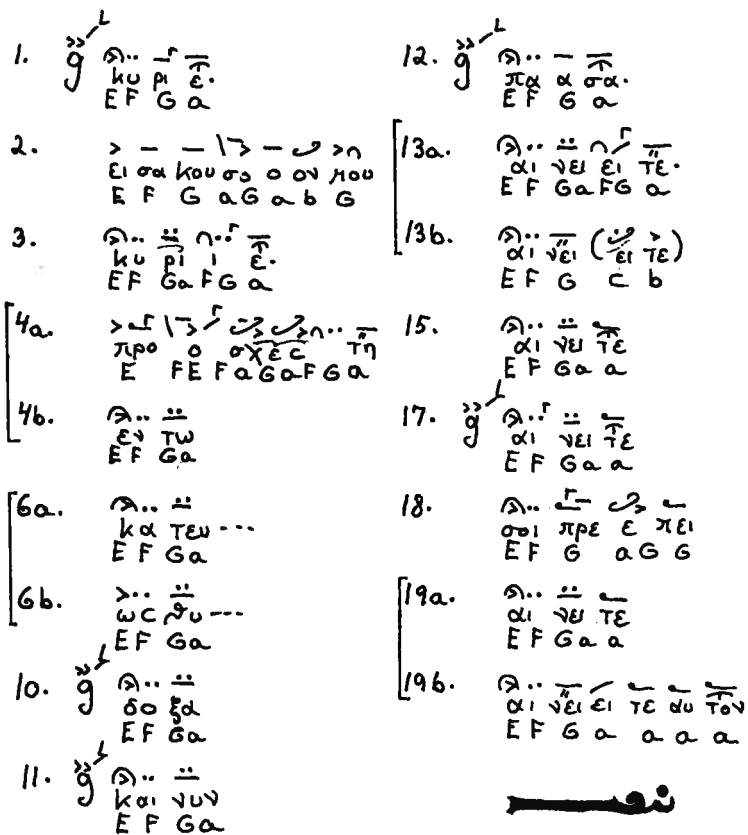 1. κυ ρι ε.
E F G a
2. ει σα κου σο ο ον μου
E F G a G a b G
3. κυ ρι ι ε.
E F G a F G a
4a. προ ο σχες τη
E F E F a G a F G a
4b. εν τω
E F G a
6a. κα τευ ---
E F G a
6b. ως θυ ---
E F G a
10. δο ξα
E F G a
11. και νυν
E F G a
12. πα α σα.
E F G a
13a. αι νει ει τε.
E F G a F G a
13b. αι νει (ει τε)
E F G c b
15. αι νει τε
E F G a a
17. αι νει τε
E F G a a
18. σοι πρε ε πει
E F G a G G
19a. αι νει τε
E F G a a
19b. αι νει ει τε αυ τον
E F G a a a a